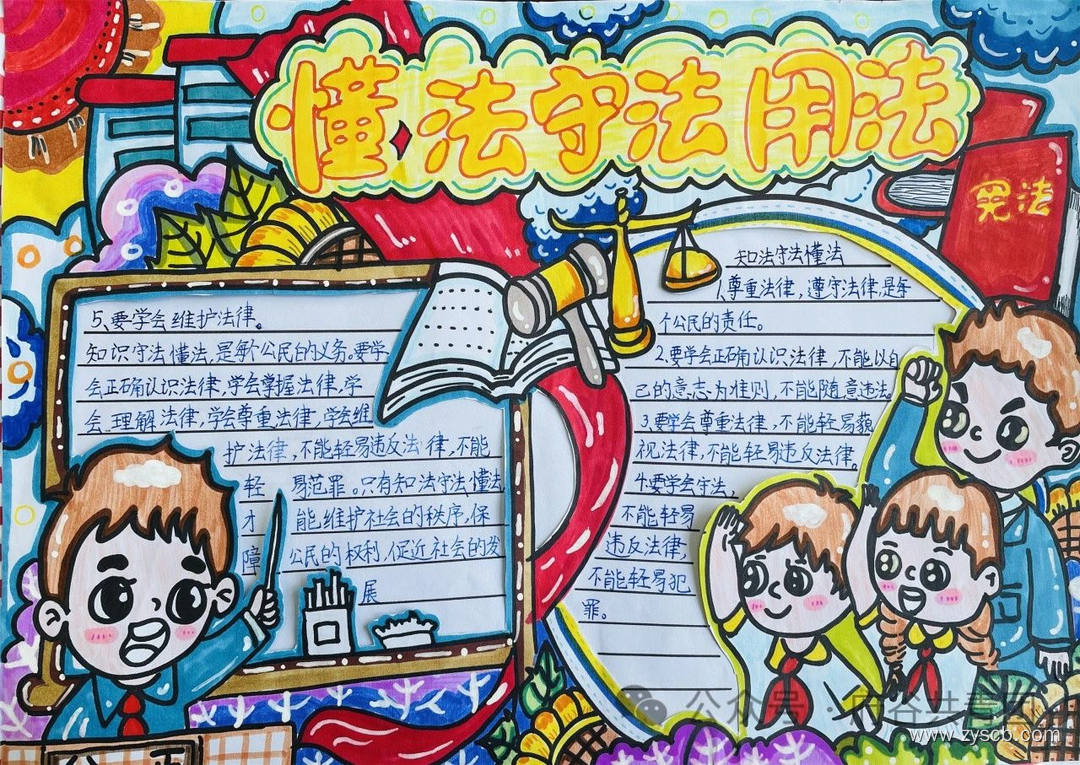 懂法守法用法
宪法
知法守法懂法
1、尊重法律，遵守法律，是每
个公民的责任。
2、要学会正确认识法律，不能以自
己的意志为准则，不能随意违法。
3、要学会尊重法律，不能轻易藐
视法律，不能轻易违反法律。
4、要学会守法，
不能轻易
违反法律，
不能轻易犯
罪。
5、要学会维护法律。
知识守法懂法，是每个公民的义务。要学
会正确认识法律，学会掌握法律，学
会理解法律，学会尊重法律，学会维
护法律，不能轻易违反法律，不能
轻易范罪。只有知法守法懂法
才能维护社会的秩序，保
障公民的权利，促近社会的发
展
公众号
www.zyscb.com